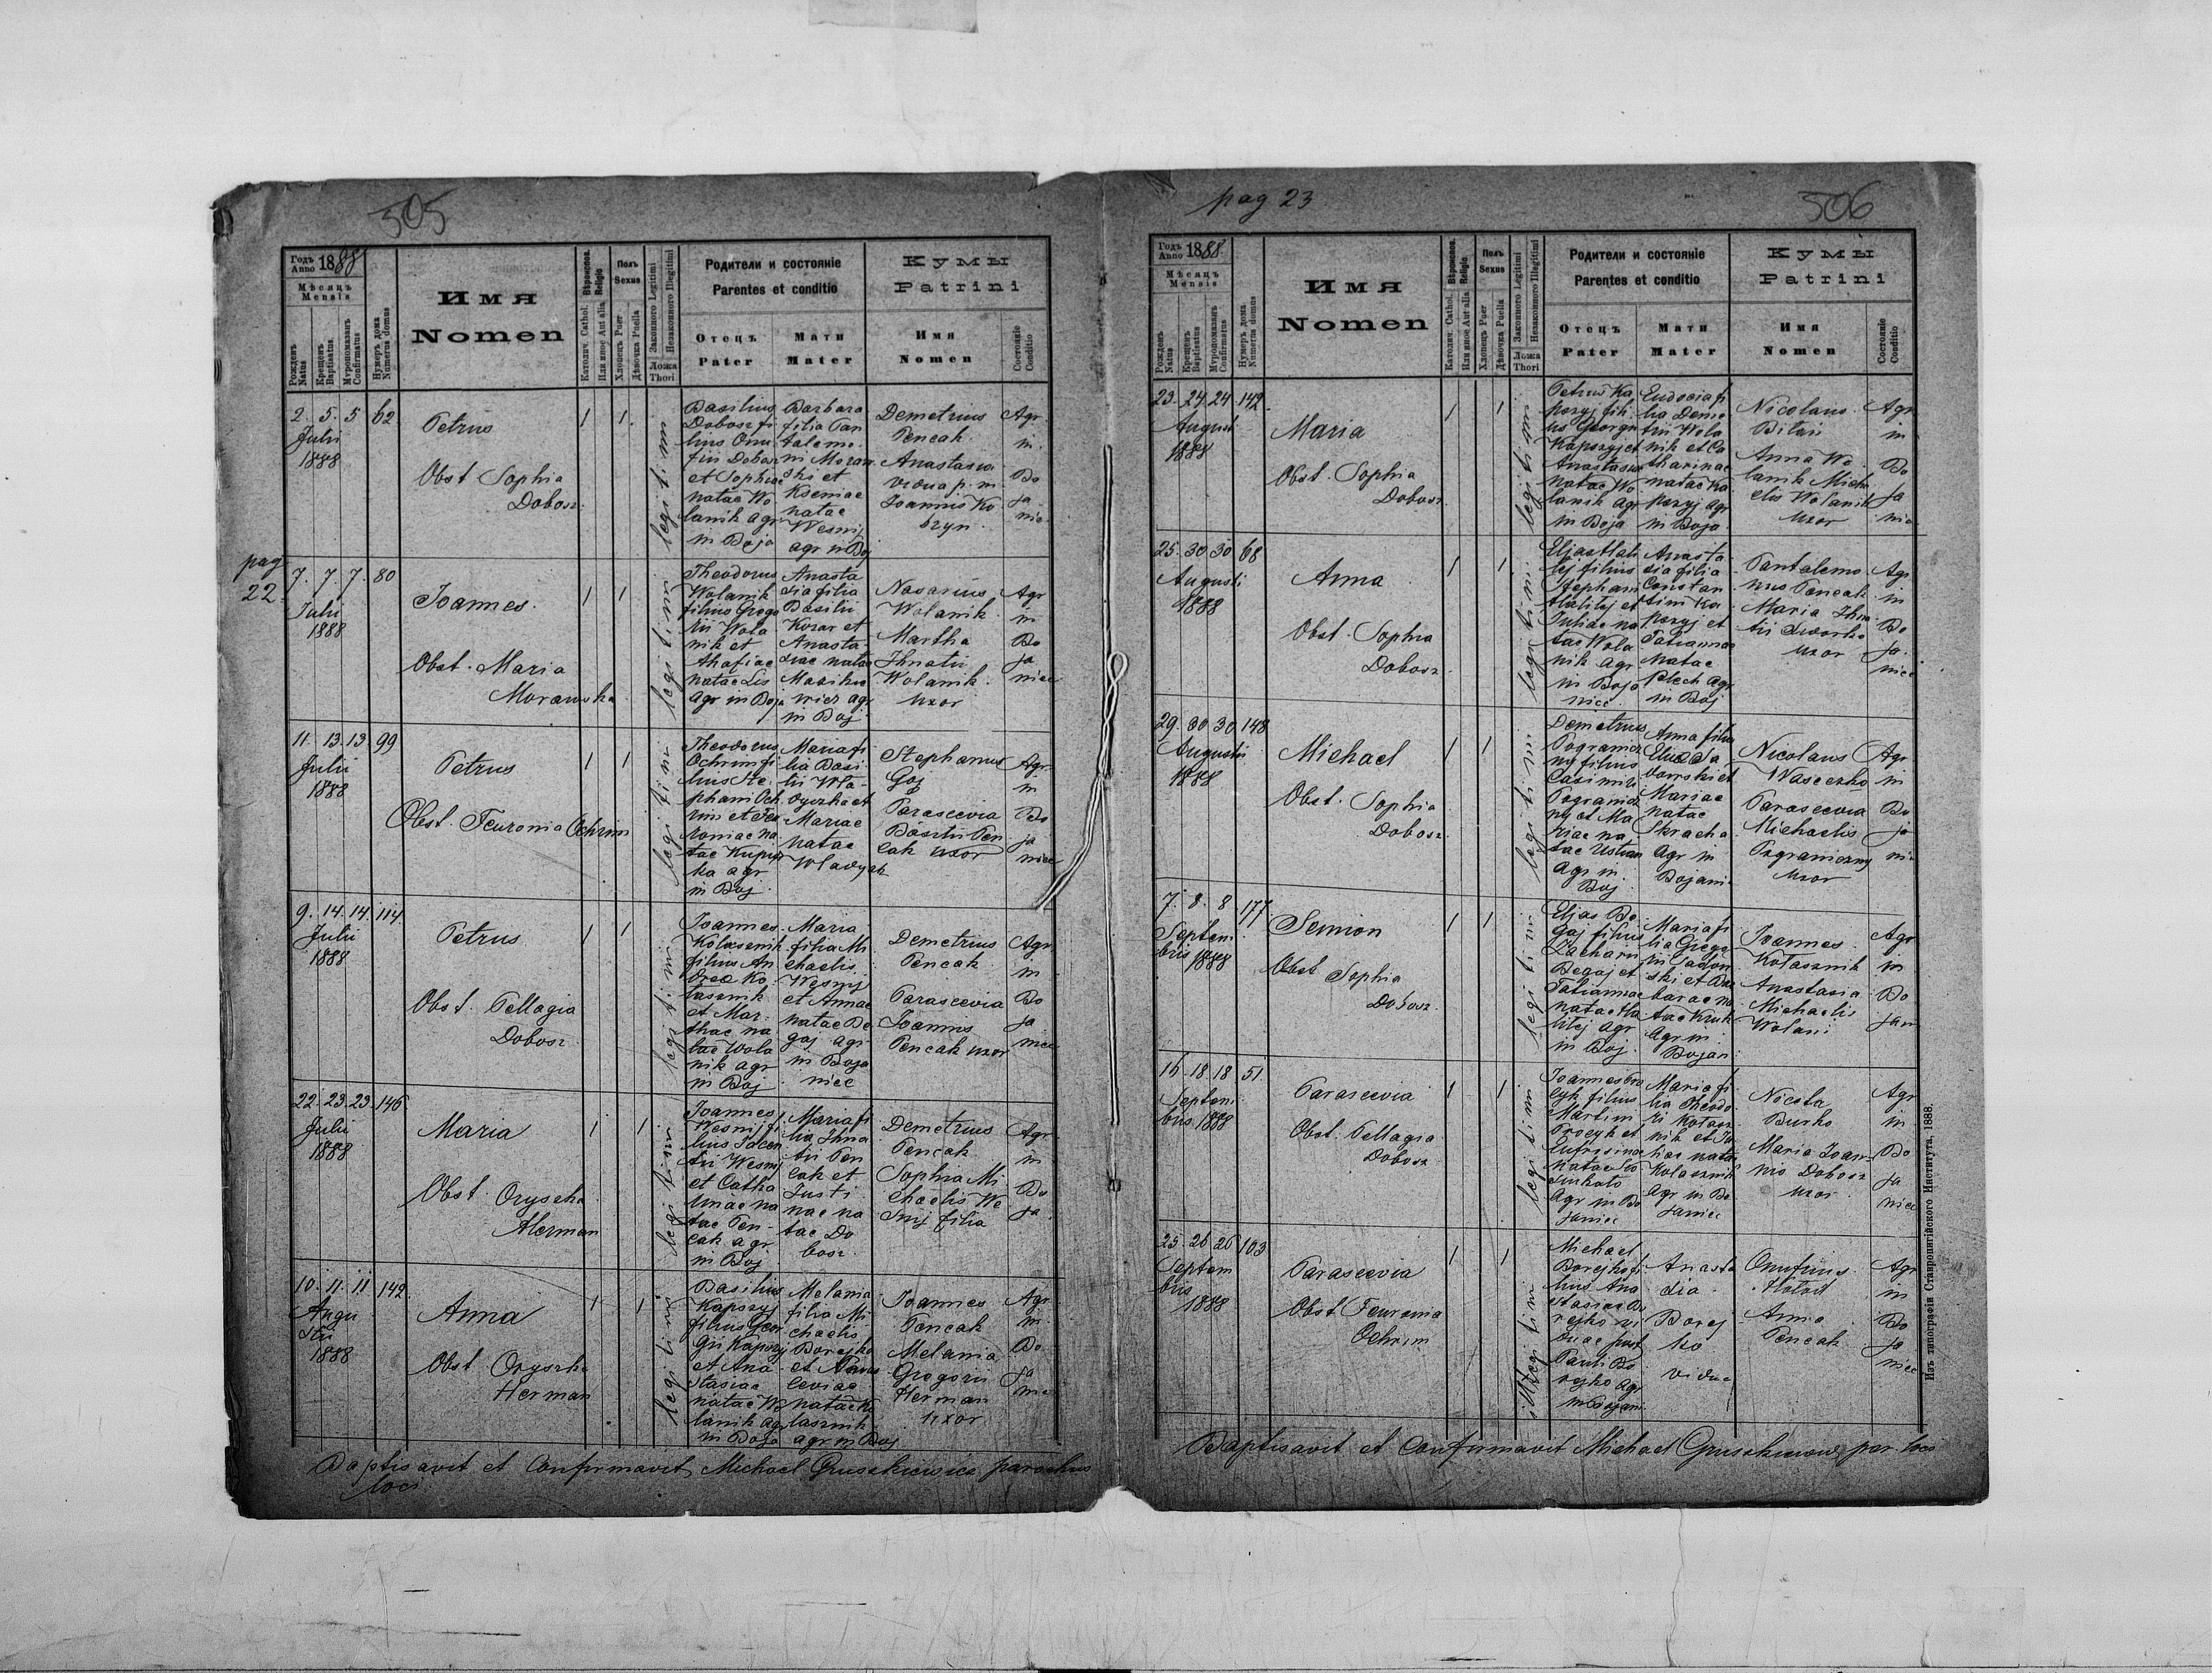 505
pag
22
Годъ 1888
Anno
Мѣсяцъ
Mensis
Рожденъ
Natus
Крещенъ
Baptisatus
Мѵропомазанъ
Confirmatus
Нумеръ дома
Numerus domus
Имя
Nomen
Вѣроиспов.
Religio
Католич. Cathol.
Или иное Aut alia
Полъ
Sexus
Хлопецъ Puer
Дѣвочка Puella
Законного Legitimi
Незаконного Illegitimi
Ложа
Thori
Родители и состояніе
Parentes et conditio
Отецъ
Pater
Мати
Mater
Кумы
Patrini
Имя
Nomen
Состояніе
Conditio
2. 5. 5 62
Julii
1888
Petrus
Obst Sophia
Dobosz
1 1
legitimi
Basilius
Dobosz fi
lius Onu
frii Dobosz
et Sophiae
natae Wo
lanik agr
in Boja
Barbara
filia Pan
talemo
ni Moraw
ski et
Kseniae
natae
Wesnij
agr in Boj
Demetrius
Pencak
Anastasia
vidua p. m.
Joannis Ko
szyn
Agr
in
Bo
ja
nic
7. 7. 7. 80
Julii
1888
Joannes
Obst. Maria
Morawska
1 1
legitimi
Theodorus
Wolanik
filius Grego
rii Wola
nik et
Ahafiae
natae Lis
agr in Boja
Anasta
sia filia
Basilii
Kozar et
Anasta
siae natae
Mazike
wicz agr
in Boj
Nazarius
Wolanik
Martha
Ihnatii
Wolanik
uxor
Agr
in
Bo
ja
nice
11. 13. 13. 99
Julii
1888
Petrus
Obst. Feuronia Ochrim
1 1
legitimi
Theodorus
Ochrim fi
lius Ste
phani Och
rim et Feu
roniae na
tae Kupys
ka agr
in Boj
Maria fi
lia Basi
lii Wla
dyczka et
Mariae
natae
Wladyzk
Stephanus
Goj
Parascevia
Basilii Pen
cak uxor
Agr
in
Bo
ja
nice
9. 14. 14. 114
Julii
1888
Petrus
Obst. Pellagia
Dobosz
1 1
legitimi
Joannes
Kolasznik
filius An
dreae Ko
lasznik
et Mar
thae na
tae Wola
nik agr
in Boj
Maria
filia Mi
chaelis
Wesnij
et Annae
natae Be
gaj agr
in Boja
nice
Demetrius
Pencak
Parascevia
Joannis
Pencak uxor
Agr
in
Bo
ja
nice
22. 23. 23. 146
Julii
1888
Maria
Obst. Oryszka
Herman
1 1
legitimi
Joannes
Wesnij fi
lius Ideen
tii Wesnij
et Catha
rinae na
tae Pen
cak agr
in Boj
Maria fi
lia Ihna
tii Pen
cak et
Justi
nae na
tae Do
bosz
Demetrius
Pencak
Sophia Mi
chaelis We
snij filia
Agr
in
Bo
ja
10. 11. 11 142
Augu
sti
1888
Anna
Obst. Oryszka
Herman
1 1
legitimi
Basilius
Kapszyj
filius Geor
gii Kapszyj
et Ana
stasiae
natae Wo
lanik agr
in Boja
Melania
filia Mi
chaelis
Borejko
et Paras
ceviae
natae Ko
lasznik
agr in Boj
Joannes
Pencak
Melania
Gregorii
Herman
uxor
Agr
in
Bo
ja
nic
Baptisavit et Confirmavit Michael Gruszkiewicz parochus
loci
pag 23
506
Годъ 1888
Anno
Мѣсяцъ
Mensis
Рожденъ
Natus
Крещенъ
Baptisatus
Мѵропомазанъ
Confirmatus
Нумеръ дома
Numerus domus
Имя
Nomen
Вѣроиспов.
Religio
Католич. Cathol.
Или иное Aut alia
Полъ
Sexus
Хлопецъ Puer
Дѣвочка Puella
Законного Legitimi
Незаконного Illegitimi
Ложа
Thori
Родители и состояніе
Parentes et conditio
Отецъ
Pater
Мати
Mater
Кумы
Patrini
Имя
Nomen
Состояніе
Conditio
23. 24 24 142
August
1888
Maria
Obst. Sophia
Dobosz
1 1
legitimi
Petrus Ka
pszyj fili
us Georgii
Kapszyj et
Anastasiae
natae Wo
lanik agr
in Boja
Eudocia fi
lia Deme
trii Wola
nik et Ca
tharinae
natae Ka
pszyj agr
in Boja
Nicolaus
Bilan
Anna Wo
lanik Micha
elis Wolanik
uxor
Agr
in
Bo
ja
nic
25. 30 30 68
Augusti
1888
Anna
Obst. Sophia
Dobosz
1 1
legitimi
Elias Hali
lej filius
Stephani
Halilej et
Juliae na
tae Wola
nik agr
in Boja
nice
Anasta
sia filia
Constan
tini Ka
pszyj et
Tatiannae
natae
Pelech agr
in Boj
Pantalemo
nus Pencak
Maria Ihna
tii Dworko
uxor
Agr
in
Bo
ja
nice
29. 30 30 148
Augusti
1888
Michael
Obst. Sophia
Dobosz
1 1
legitimi
Demetrius
Pogranicz
ny filius
Casimiri
Pogranicz
ny et Ma
riae na
tae Ustian
agr in
Boj
Anna filia
Eliae Sa
dowski et
Mariae
natae
Skracha
agr in
Bojani
Nicolaus
Waseczko
Parascevia
Michaelis
Pograniczny
uxor
Agr
in
Bo
ja
nic
7. 8. 8 177
Septem
bris 1888
Semion
Obst Sophia
Dobosz
1 1
legitimi
Elias Be
gaj filius
Zacharii
Begaj et
Tatiannae
natae Ha
lilej agr
in Boj
Maria fi
lia Grego
rii Sadow
ski et Bar
barae na
tae Kruk
agr in
Bojan
Joannes
Kolasznik
Anastasia
Michaelis
Wolani
Agr
in
Bo
jan
16. 18. 18 51
Septem
bris 1888
Parascevia
Obst. Pellagia
Dobosz
1 1
legitimi
Joannes Pro
cyk filius
Martini
Procyk et
Eufrosinae
natae
agr in Bo
janiec
Maria fi
lia Theodo
ri Kolasz
nik et Ju
liae natae
Kolasznik
agr in Bo
janiec
Nicola
Burko
Maria Joan
nis Dobosz
uxor
Agr
in
Bo
ja
nice
25. 26 26 103
Septem
bris
1888
Parascevia
Obst. Feuronia
Ochrim
1 1
illegitimi
Michael
Borejko fi
lius Ana
stasiae Bo
rejko vi
duae post
Pauli Bo
rejko agr
in Bojani
Anasta
sia
Borej
ko
vidua
Onufrius
Holod
Anna
Pencak
Agr
in
Bo
ja
nice
Baptisavit et Confirmavit Michael Gruszkiewicz par loci
Изъ типографіи Ставропигійского Института. 1888.